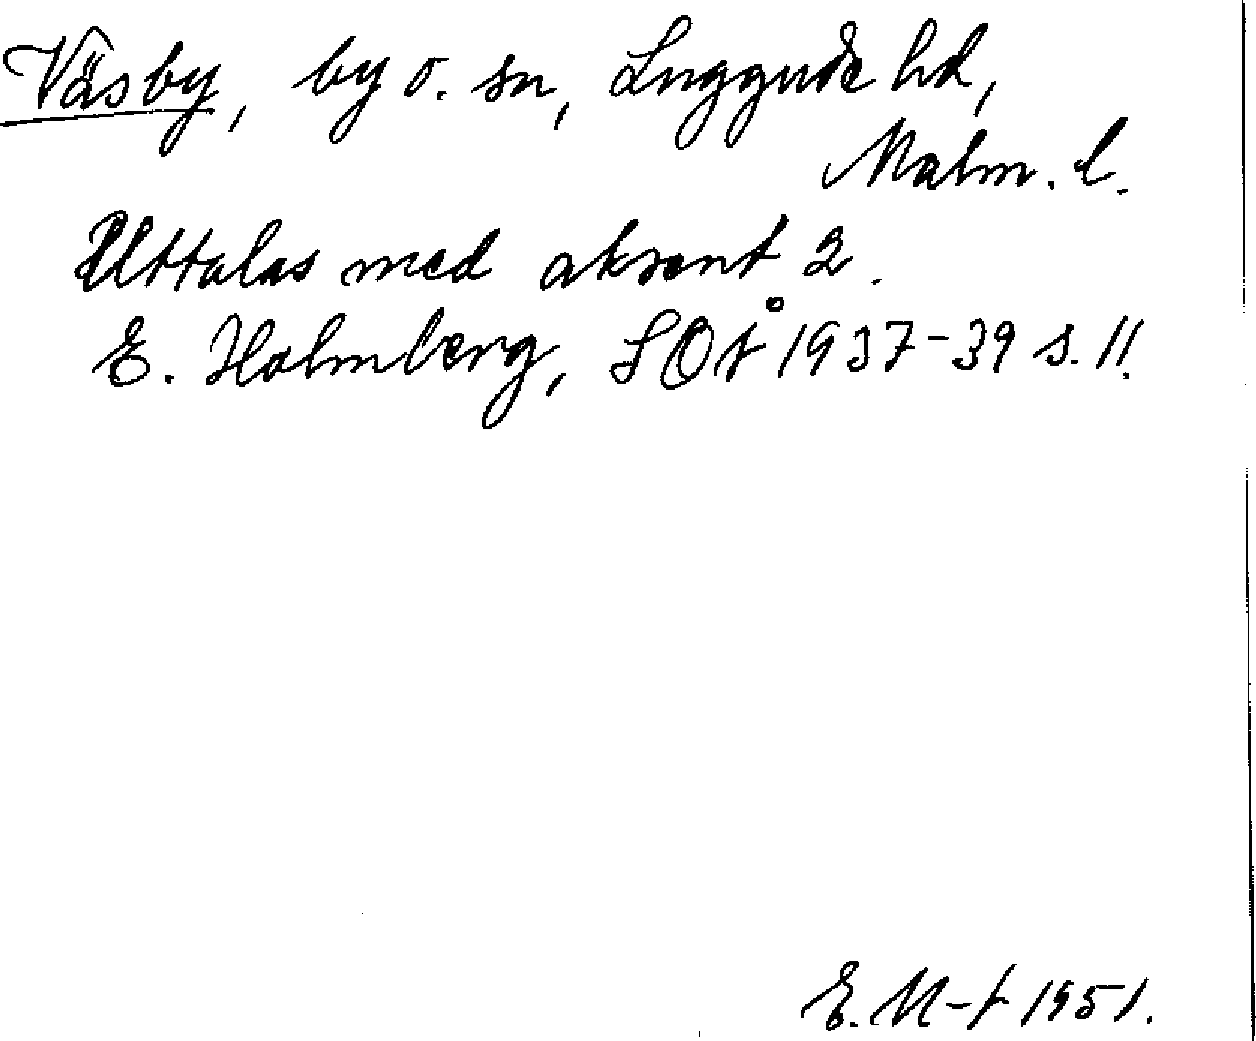 Väsby, by o. sn, Luggude hd,
Malm. l.
Uttalas med aksent 2.
E. Holmberg, SOÅ 1937-39 s. 11.
E. M-t 1951.